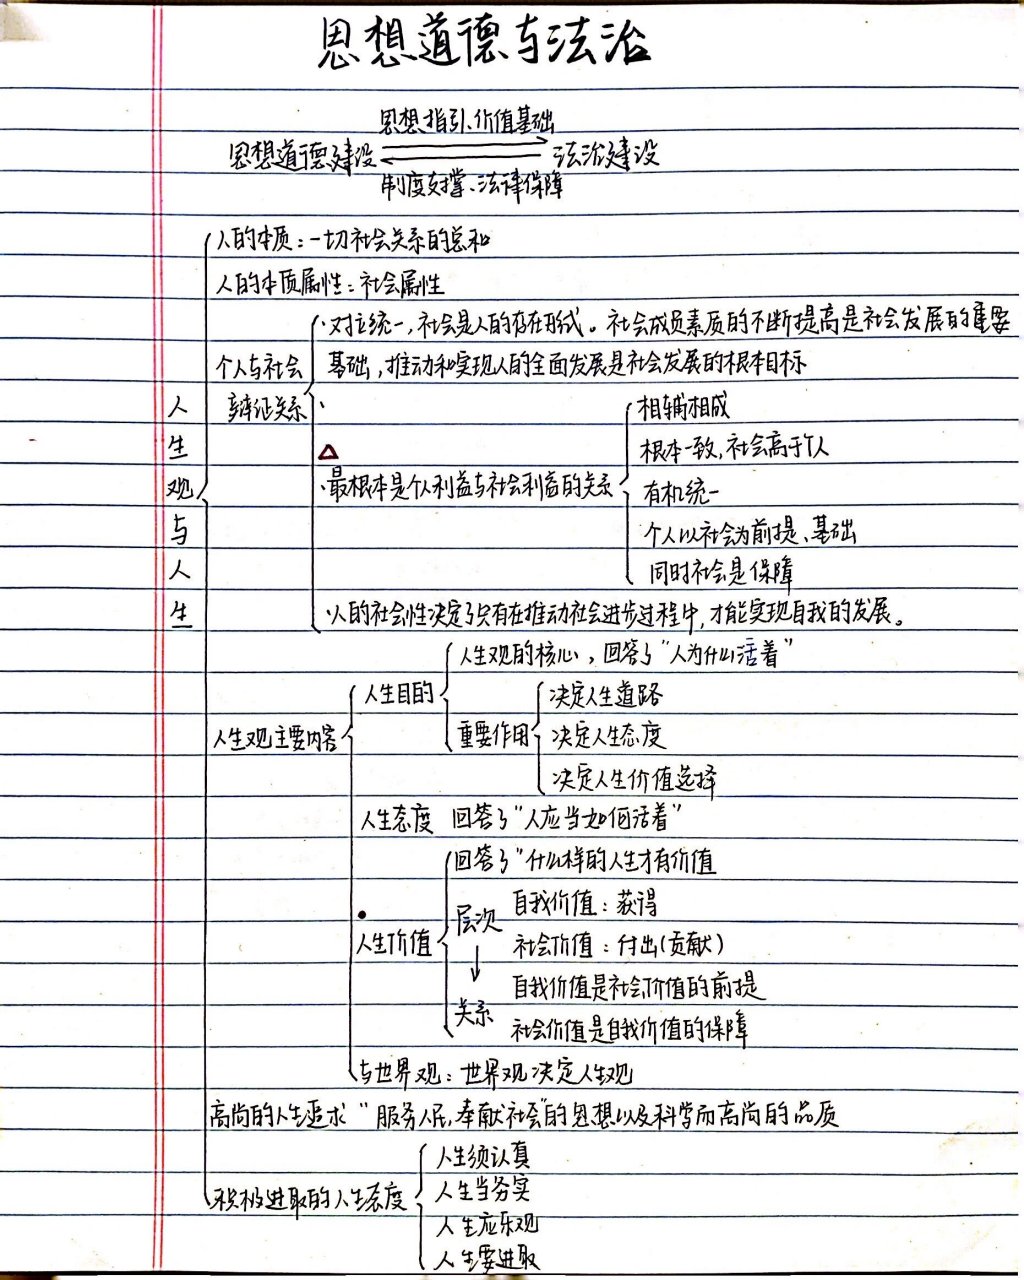 思想道德与法治
思想指引、价值基础
思想道德建设 法治建设
制度支撑、法律保障
人的本质：一切社会关系的总和
人的本质属性：社会属性
·对立统一，社会是人的存在形式。社会成员素质的不断提高是社会发展的重要
个人与社会 基础，推动和实现人的全面发展是社会发展的根本目标
辩证关系
相辅相成
根本一致，社会高于个人
·最根本是个人利益与社会利益的关系
有机统一
个人以社会为前提、基础
同时社会是保障
人生观与人生
·人的社会性决定了只有在推动社会进步过程中，才能实现自我的发展。
人生观的核心，回答了“人为什么活着”
人生目的
决定人生道路
人生观主要内容 重要作用 决定人生态度
决定人生价值选择
人生态度 回答了“人应当如何活着”
回答了“什么样的人生才有价值
层次 自我价值：获得
人生价值 社会价值：付出(贡献)
自我价值是社会价值的前提
关系
社会价值是自我价值的保障
与世界观：世界观决定人生观
高尚的人生追求“服务人民，奉献社会”的思想以及科学而高尚的品质
人生须认真
积极进取的人生态度 人生当务实
人生应乐观
人生要进取